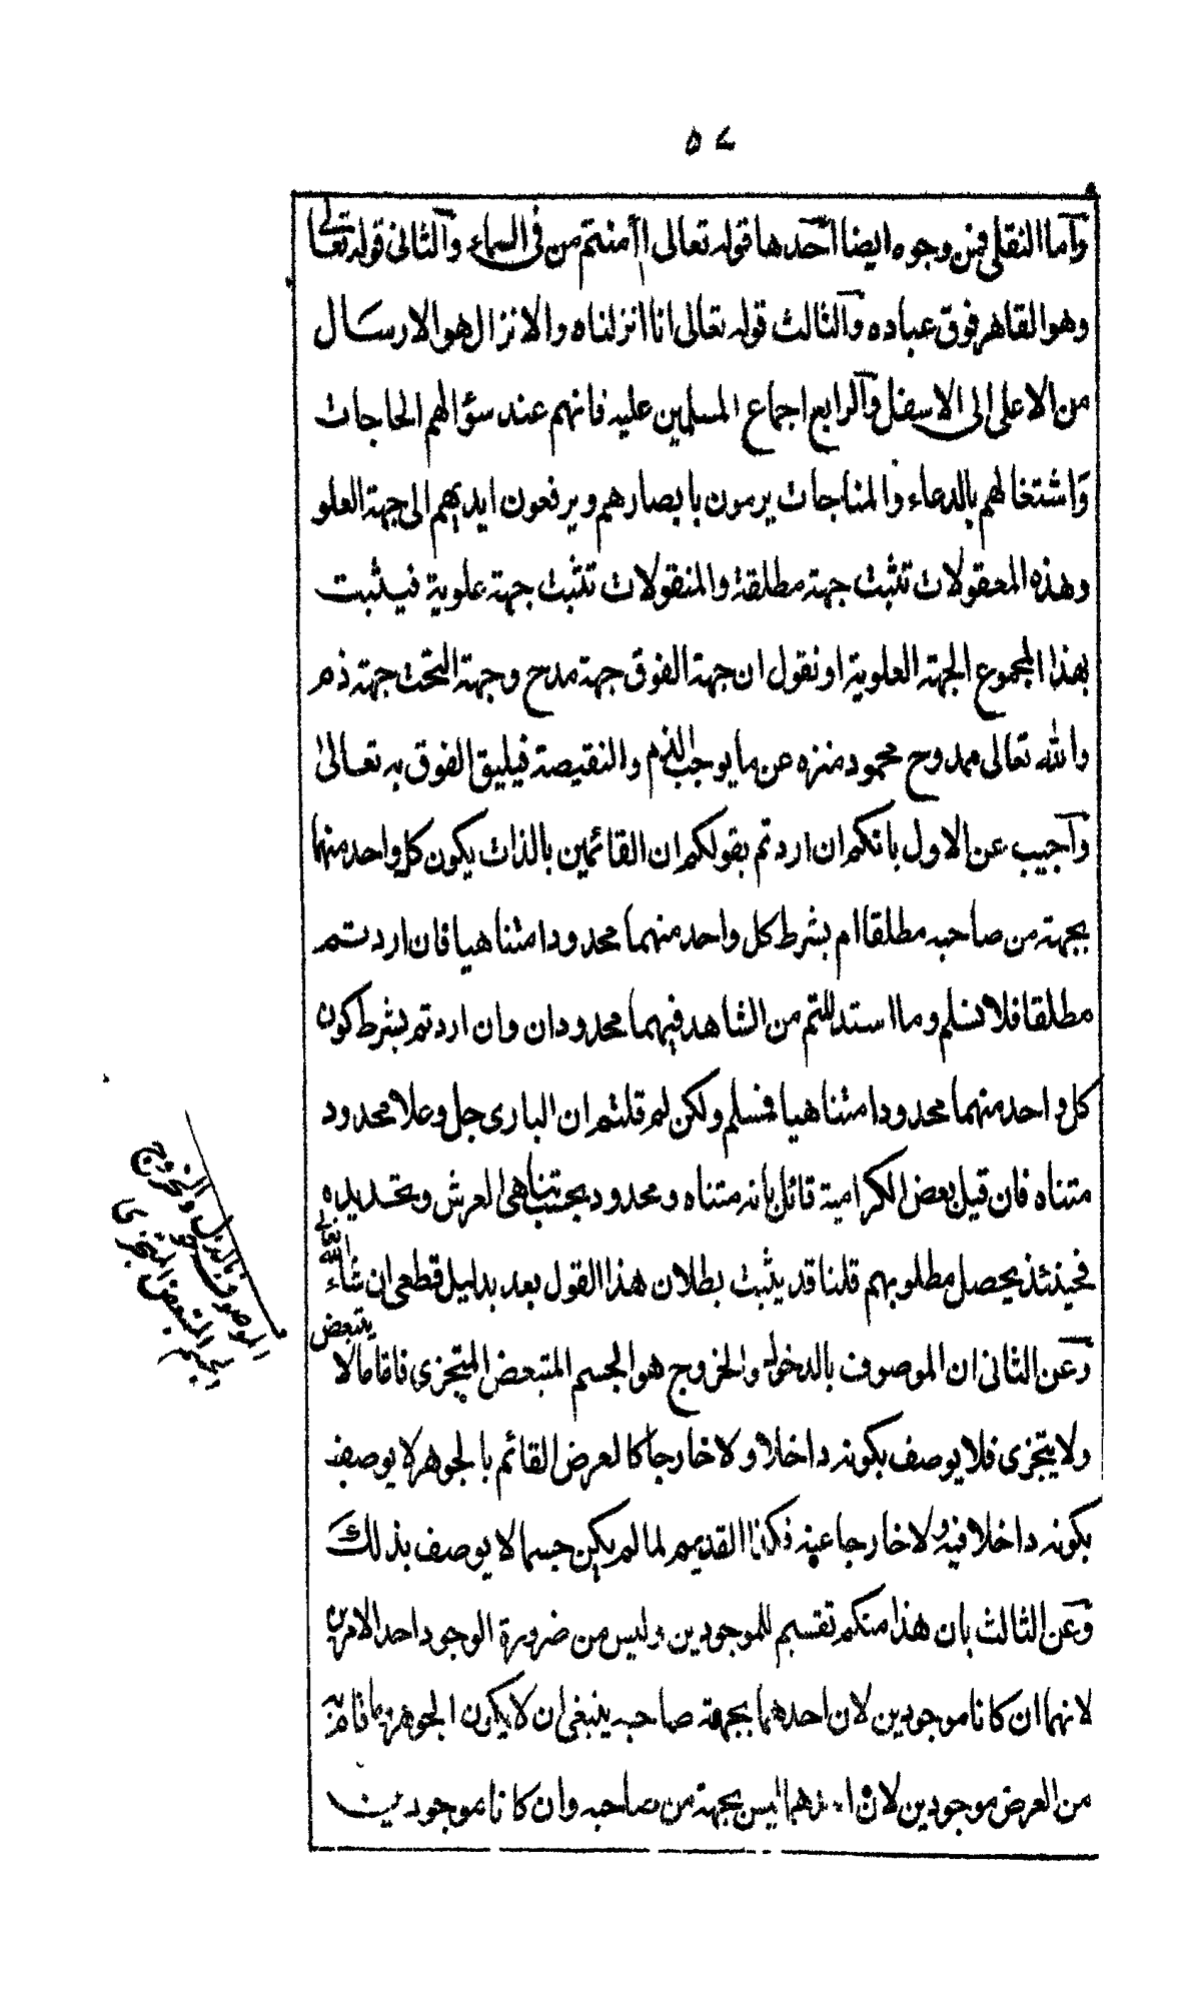 ٥٧
وآما النقلى فمن وجوه ايضا احدها قوله تعالى أأمنتم من فى السماء وآلثانى قوله تعالى
وهو القاهر فوق عباده وآلثالث قوله تعالى انا انزلناه والانزال هو الارسال
من الاعلى الى الاسفل وآلرابع اجماع المسلمين عليه فانهم عند سؤالهم الحاجات
واشتغالهم بالدعاء والمناجات يرمون بابصارهم ويرفعون ايديهم الى جهة العلو
وهذه المعقولات تثبت جهة مطلقة والمنقولات تثبت جهة علوية فيثبت
بهذا المجموع الجهة العلوية او نقول ان جهة الفوق جهة مدح وجهة التحت جهة ذم
والله تعالى ممدوح محمود منزه عن ما يوجب الذم والنقيصة فيليق الفوق به تعالى
وآجيب عن الاول بانكم ان اردتم بقولكم ان القائمين بالذات يكون كل واحد منهما
بجهة من صاحبه مطلقا ام بشرط كل واحد منهما محدودا متناهيا فان اردتم
مطلقا فلا نسلم وما استدللتم من الشاهد فيهما محدودان وان اردتم بشرط كون
كل واحد منهما محدودا متناهيا فنسلم ولكن لم قلتم ان البارى جل وعلا محدود
متناه فان قيل بعض الكرامية قائل بانه متناه ومحدود بحسب تناهى العرش وتحديده
فحينئذ يحصل مطلوبهم قلنا قد يثبت بطلان هذا القول بعد بدليل قطعى ان شاء الله تعالى
وعن الثانى ان الموصوف بالدخول والخروج هو الجسم المتبعض المتجزى فاما ما لا يتبعض
ولا يتجزى فلا يوصف بكونه داخلا ولا خارجا كالعرض القائم بالجوهر لا يوصف
بكونه داخلا فيه ولا خارجا عنه فكذا القديم لما لم يكن جسما لا يوصف بذلك
وعن الثالث بان هذا منكم تقسيم للموجودين وليس من ضرورة الوجود احد الامرين
لانهما ان كانا موجودين لان احدهما بجهة صاحبه ينبغى ان لا يكون الجوهر وما قام به
من العرض موجودين لان احدهما ليس بجهة من صاحبه وان كانا موجودين
الموصوف بالدخول والخروج
هو الجسم المتبعض المتجزى